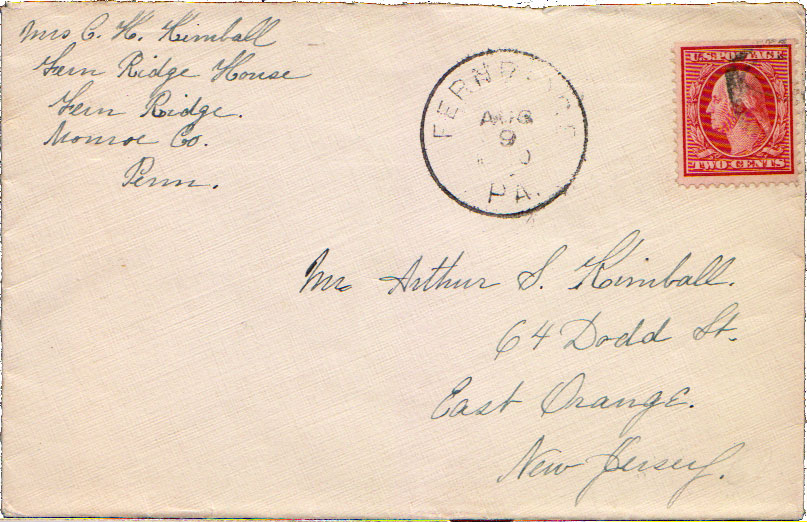 Mrs C. H. Kimball
Fern Ridge House
Fern Ridge.
Monroe Co.
Penn.
AUG
9
PA.
U.S. POSTAGE
TWO CENTS
Mr Arthur S. Kimball.
64 Dodd St.
East Orange.
New Jersey.